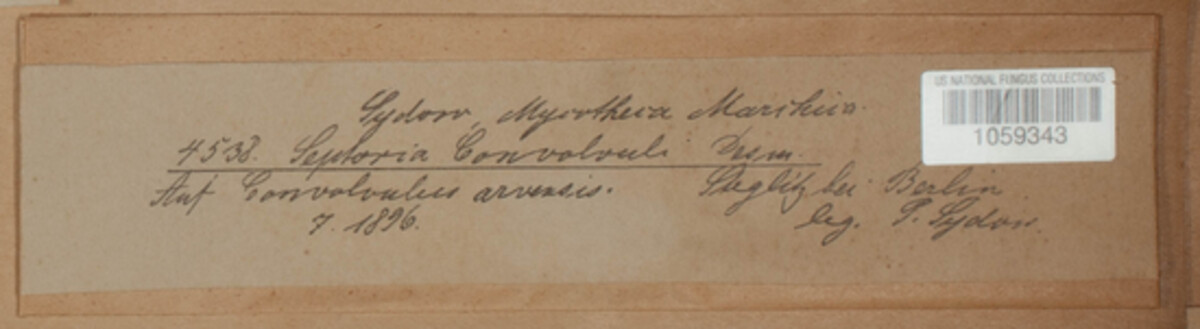 Sydow, Mycotheca Marchica.
4538. Septoria Convolvuli Desm.
Auf Convolvulus arvensis. Steglitz bei Berlin
7. 1896. leg. P. Sydow.
US NATIONAL FUNGUS COLLECTIONS
1059343